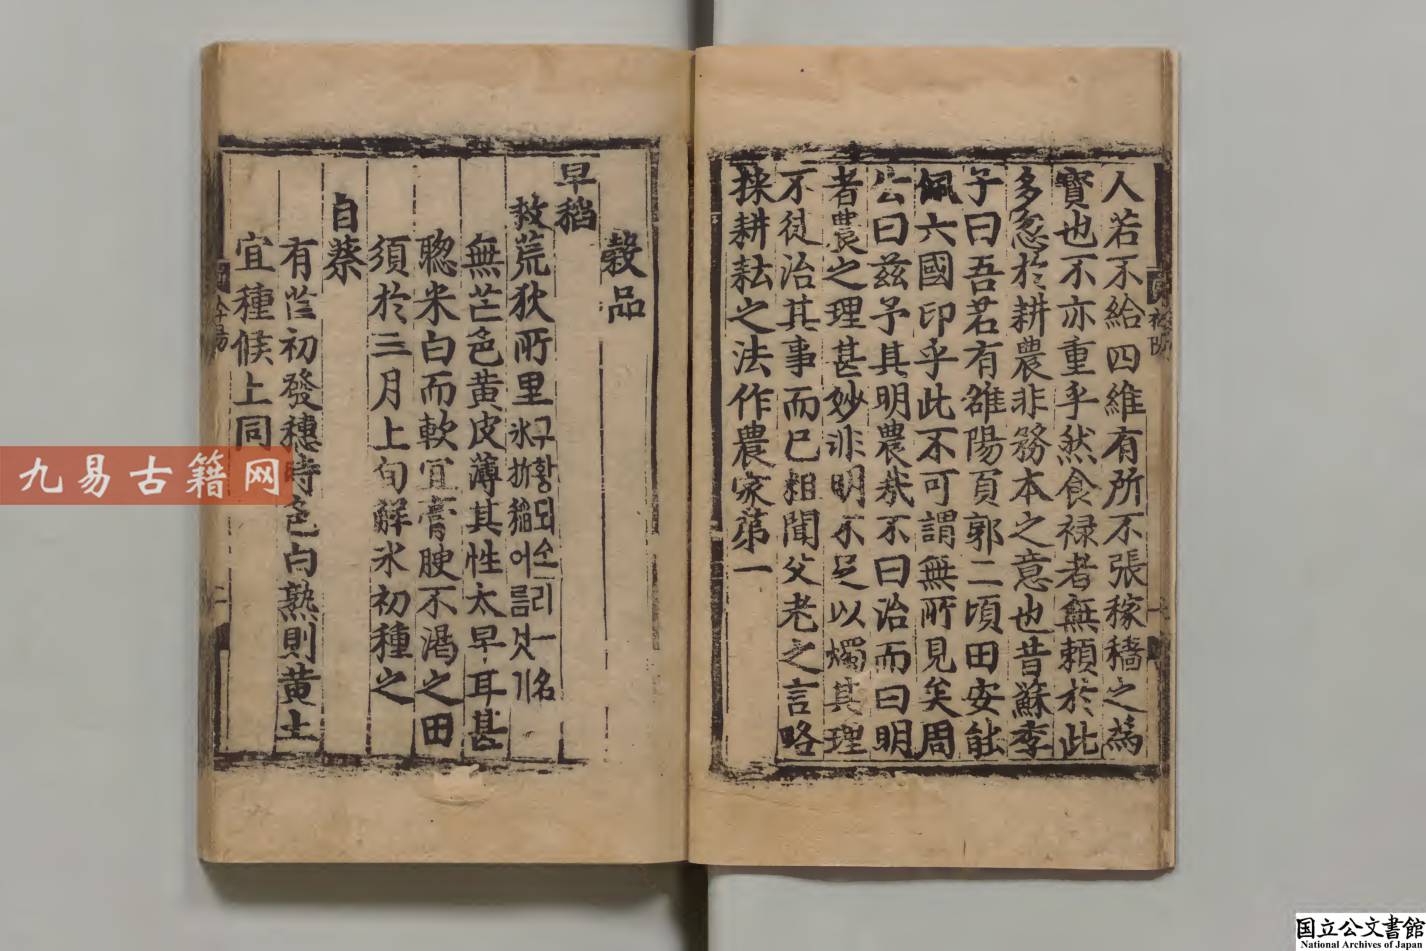 人若不給四維有所不張稼穡之爲
寳也不亦重乎然食禄者無頼於此
多忽於耕農非務本之意也昔蘇季
子曰吾若有雒陽頁郭二頃田安能
佩六國印乎此不可謂無所見矣周
公曰兹予其明農㢤不曰治而曰明
者農之理甚妙非明不足以燭其理
不徒治其事而已粗聞父老之言略
採耕耘之法作農家第一
穀品
早稻
救荒狄所里
구황되소리一名
氷折稲어름것기
無芒色黄皮薄其性太早耳甚
聦米白而軟宜膏腴不渴之田
須於三月上旬解氷初種之
自蔡
有芒初發穗時色白熟則黄土
宜種候上同
衿陽
二
九易古籍网
国立公文書館
National Archives of Japan